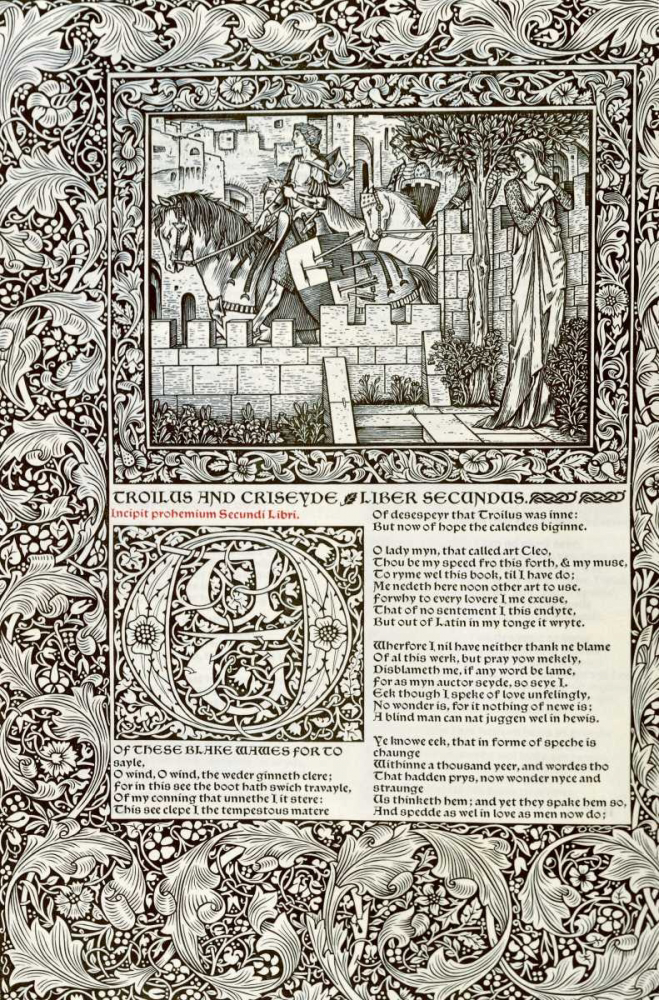 TROILUS AND CRISEYDE. LIBER SECUNDUS.
Incipit prohemium Secundi Libri.
OUT
OF THESE BLAKE WAWES FOR TO
sayle,
O wind, O wind, the weder ginneth clere;
For in this see the boot hath swich travayle,
Of my conning that unnethe I it stere:
This see clepe I the tempestous matere
Of desespeyr that Troilus was inne:
But now of hope the calendes biginne.
O lady myn, that called art Cleo,
Thou be my speed fro this forth, & my muse,
To ryme wel this book, til I have do;
Me nedeth here noon other art to use.
Forwhy to every lovere I me excuse,
That of no sentement I this endyte,
But out of Latin in my tonge it wryte.
Wherfore I nil have neither thank ne blame
Of al this werk, but pray yow mekely,
Disblameth me, if any word be lame,
For as myn auctor seyde, so seye I.
Eek though I speke of love unfelingly,
No wonder is, for it nothing of newe is;
A blind man can nat juggen wel in hewis.
Ye knowe eek, that in forme of speche is
chaunge
Withinne a thousand yeer, and wordes tho
That hadden prys, now wonder nyce and
straunge
Us thinketh hem; and yet they spake hem so,
And spedde as wel in love as men now do;